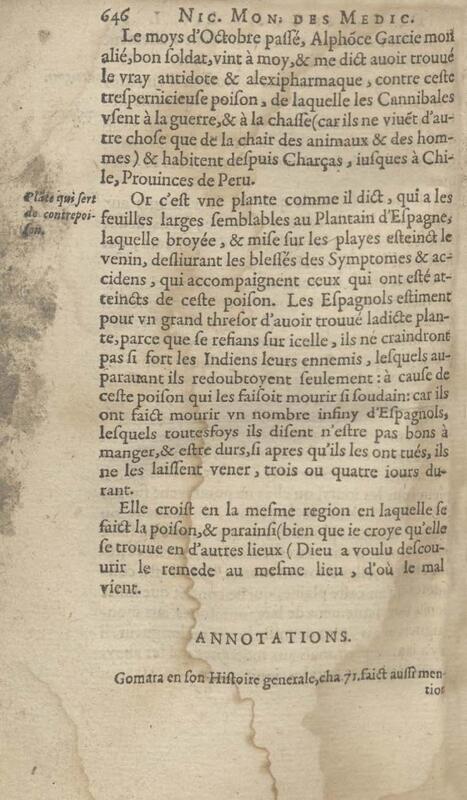 646 NIC. MON. DES MEDIC.
Le moys d'Octobre passé, Alphõce Garcie mon
alié, bon soldat, vint à moy, & me dict auoir trouué
le vray antidote & alexipharmaque, contre ceste
trespernicieuse poison, de laquelle les Cannibales
vsent à la guerre, & à la chasse (car ils ne viuẽt d'au-
tre chose que de la chair des animaux & des hom-
mes) & habitent despuis Charças, iusques à Chi-
le, Prouinces de Peru.
Plãte qui sert
de contrepoi-
son.
Or c'est vne plante comme il dict, qui a les
feuilles larges semblables au Plantain d'Espagne,
laquelle broyée, & mise sur les playes esteinct le
venin, desliurant les blessés des Symptomes & ac-
cidens, qui accompagnent ceux qui ont esté at-
teincts de ceste poison. Les Espagnols estiment
pour vn grand thresor d'auoir trouué ladicte plan-
te, parce que se refians sur icelle, ils ne craindront
pas si fort les Indiens leurs ennemis, lesquels au-
parauant ils redoubtoyent seulement : à cause de
ceste poison qui les faisoit mourir si soudain: car ils
ont faict mourir vn nombre infiny d'Espagnols,
lesquels toutesfoys ils disent n'estre pas bons à
manger, & estre durs, si apres qu'ils les ont tués, ils
ne les laissent vener, trois ou quatre iours du-
rant.
Elle croist en la mesme region en laquelle se
faict la poison, & parainsi (bien que ie croye qu'elle
se trouue en d'autres lieux ( Dieu a voulu descou-
urir le remede au mesme lieu, d'où le mal
vient.
ANNOTATIONS.
Gomara en son Histoire generale, cha 71. faict aussi men-
tion